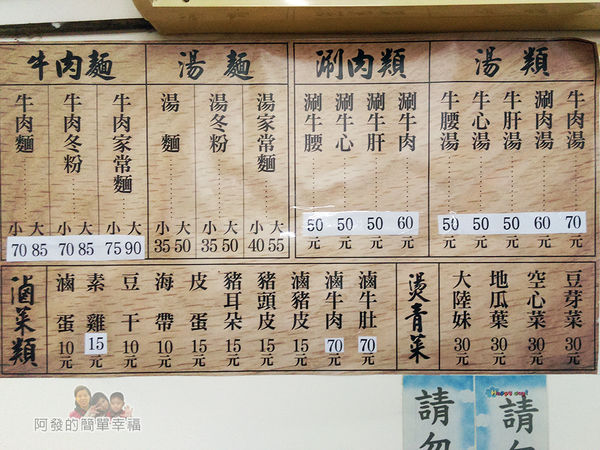 牛肉麵
牛肉麵 小70 大85
牛肉冬粉 小70 大85
牛肉家常麵 小75 大90
湯麵
湯麵 小35 大50
湯冬粉 小35 大50
湯家常麵 小40 大55
涮肉類
涮牛腰 50元
涮牛心 50元
涮牛肝 50元
涮牛肉 60元
湯類
牛腰湯 50元
牛心湯 50元
牛肝湯 50元
涮肉湯 60元
牛肉湯 70元
滷菜類
滷蛋 10元
素雞 15元
豆干 10元
海帶 10元
皮蛋 15元
豬耳朵 15元
豬頭皮 15元
滷豬皮 15元
滷牛肉 70元
滷牛肚 70元
燙青菜
大陸妹 30元
地瓜葉 30元
空心菜 30元
豆芽菜 30元
請勿
請勿
阿發的簡單幸福